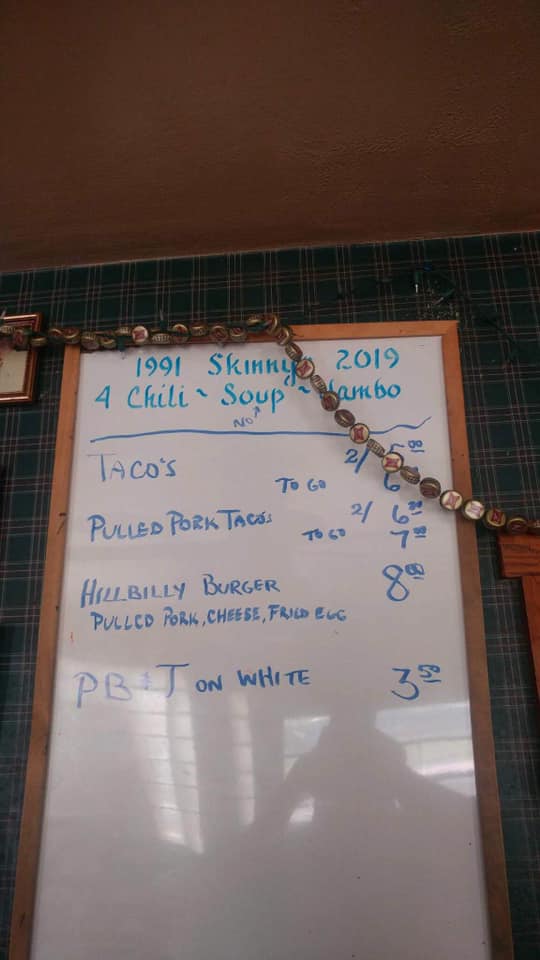 1991 Skinny 2019
4 Chili ~ Soup ~
NO
TACO'S 2/ 5.00
TO GO 6
PULLED PORK TACO'S 2/ 6.00
TO GO 7.00
HILLBILLY BURGER 8.00
PULLED PORK, CHEESE, FRIED EGG
PB & J ON WHITE 3.50